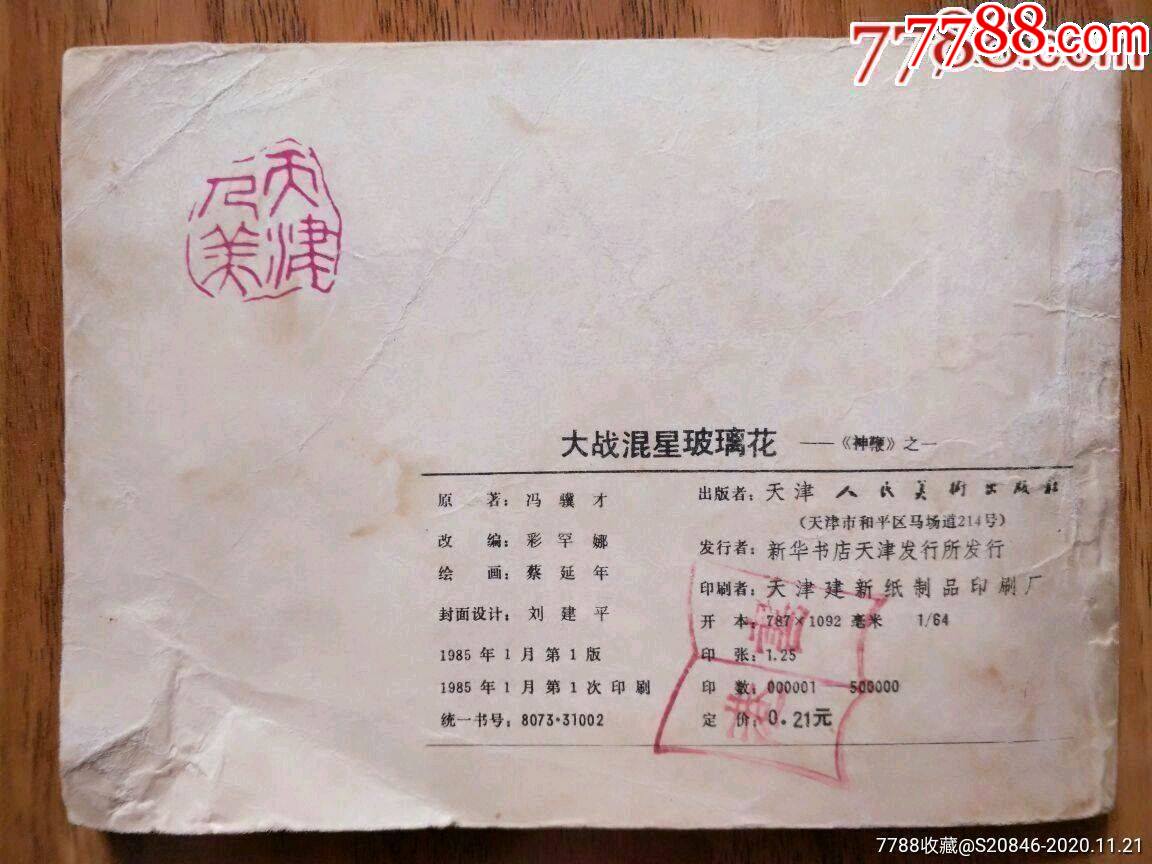 77788.com
天津
人美
大战混星玻璃花 ——《神鞭》之一
原 著：冯骥才
改 编：彩罕娜
绘 画：蔡延年
封面设计：刘建平
1985年1月第1版
1985年1月第1次印刷
统一书号：8073·31002
出版者：天津人民美术出版社
（天津市和平区马场道214号）
发行者：新华书店天津发行所发行
印刷者：天津建新纸制品印刷厂
开 本：787×1092 毫米 1/64
印 张：1.25
印 数：000001 500000
定 价：0.21元
7788收藏@S20846-2020.11.21